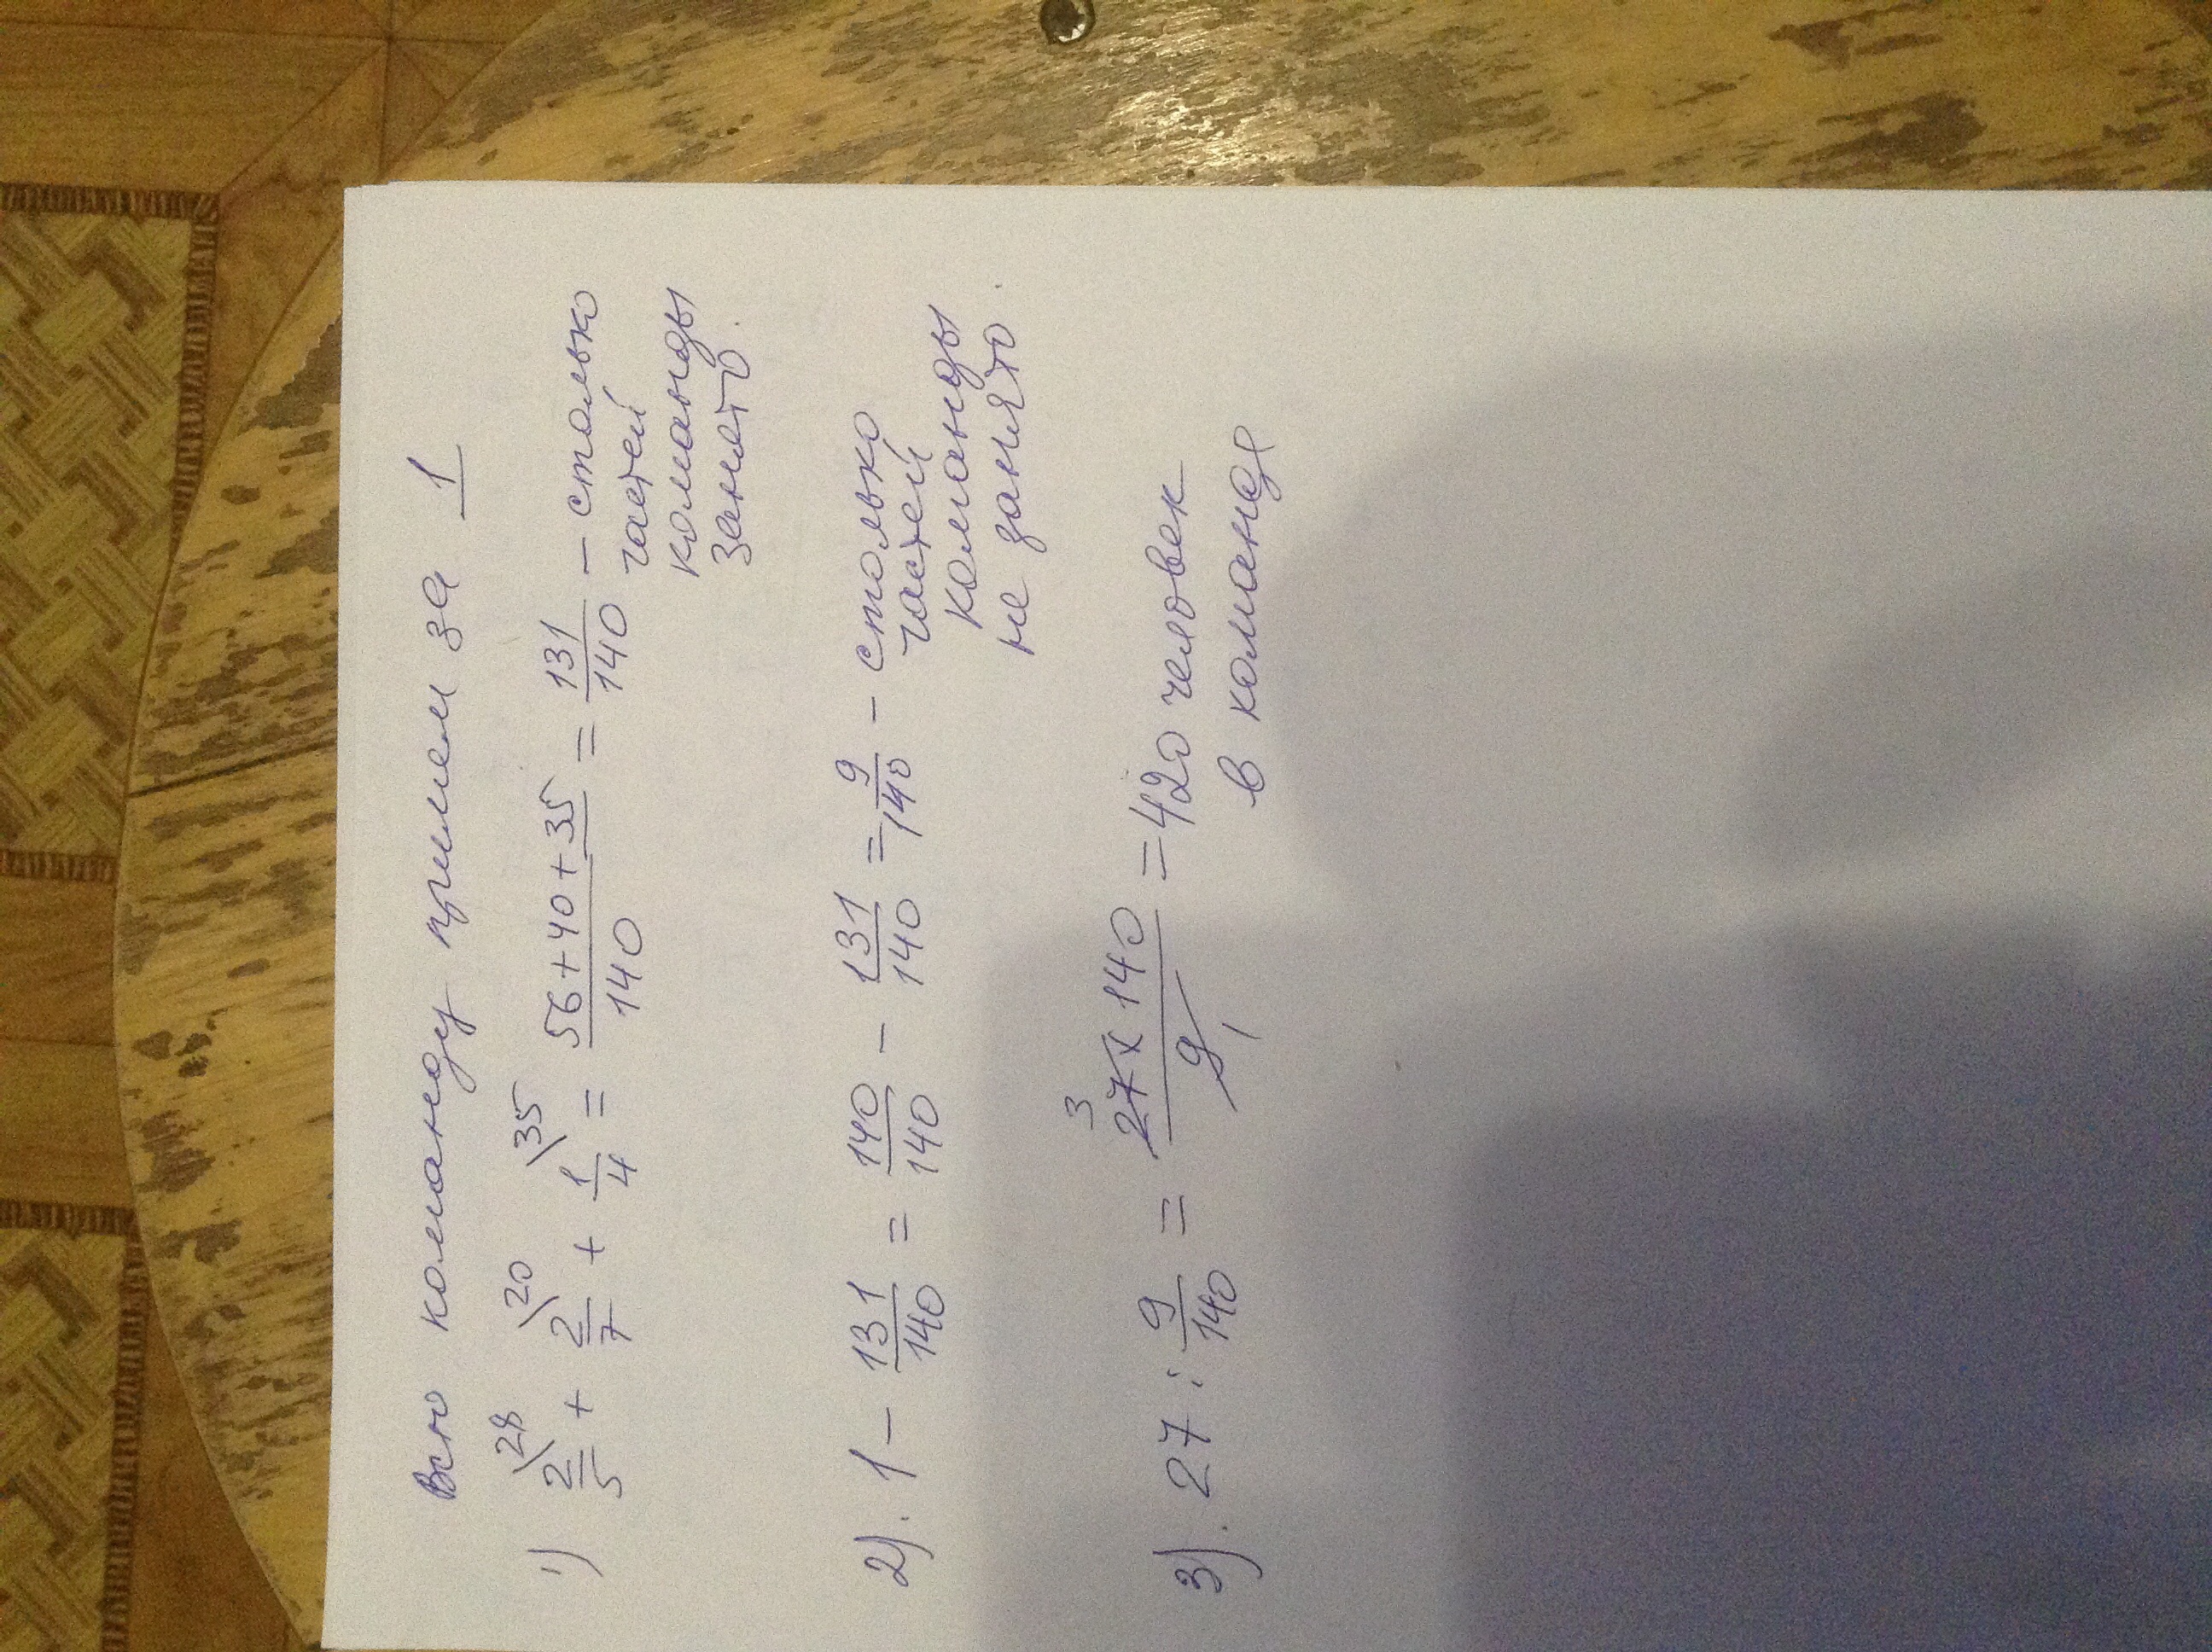 Всю команду примем за 1
1) 2/5 \28 + 2/7 \20 + 1/4 \35 = 56+40+35/140 = 131/140 – столько
частей
команды
занято.
2). 1 – 131/140 = 140/140 – 131/140 = 9/140 – столько
частей
команды
не занято.
3). 27 : 9/140 = 27 3 x 140/9 1 = 420 человек
в команде